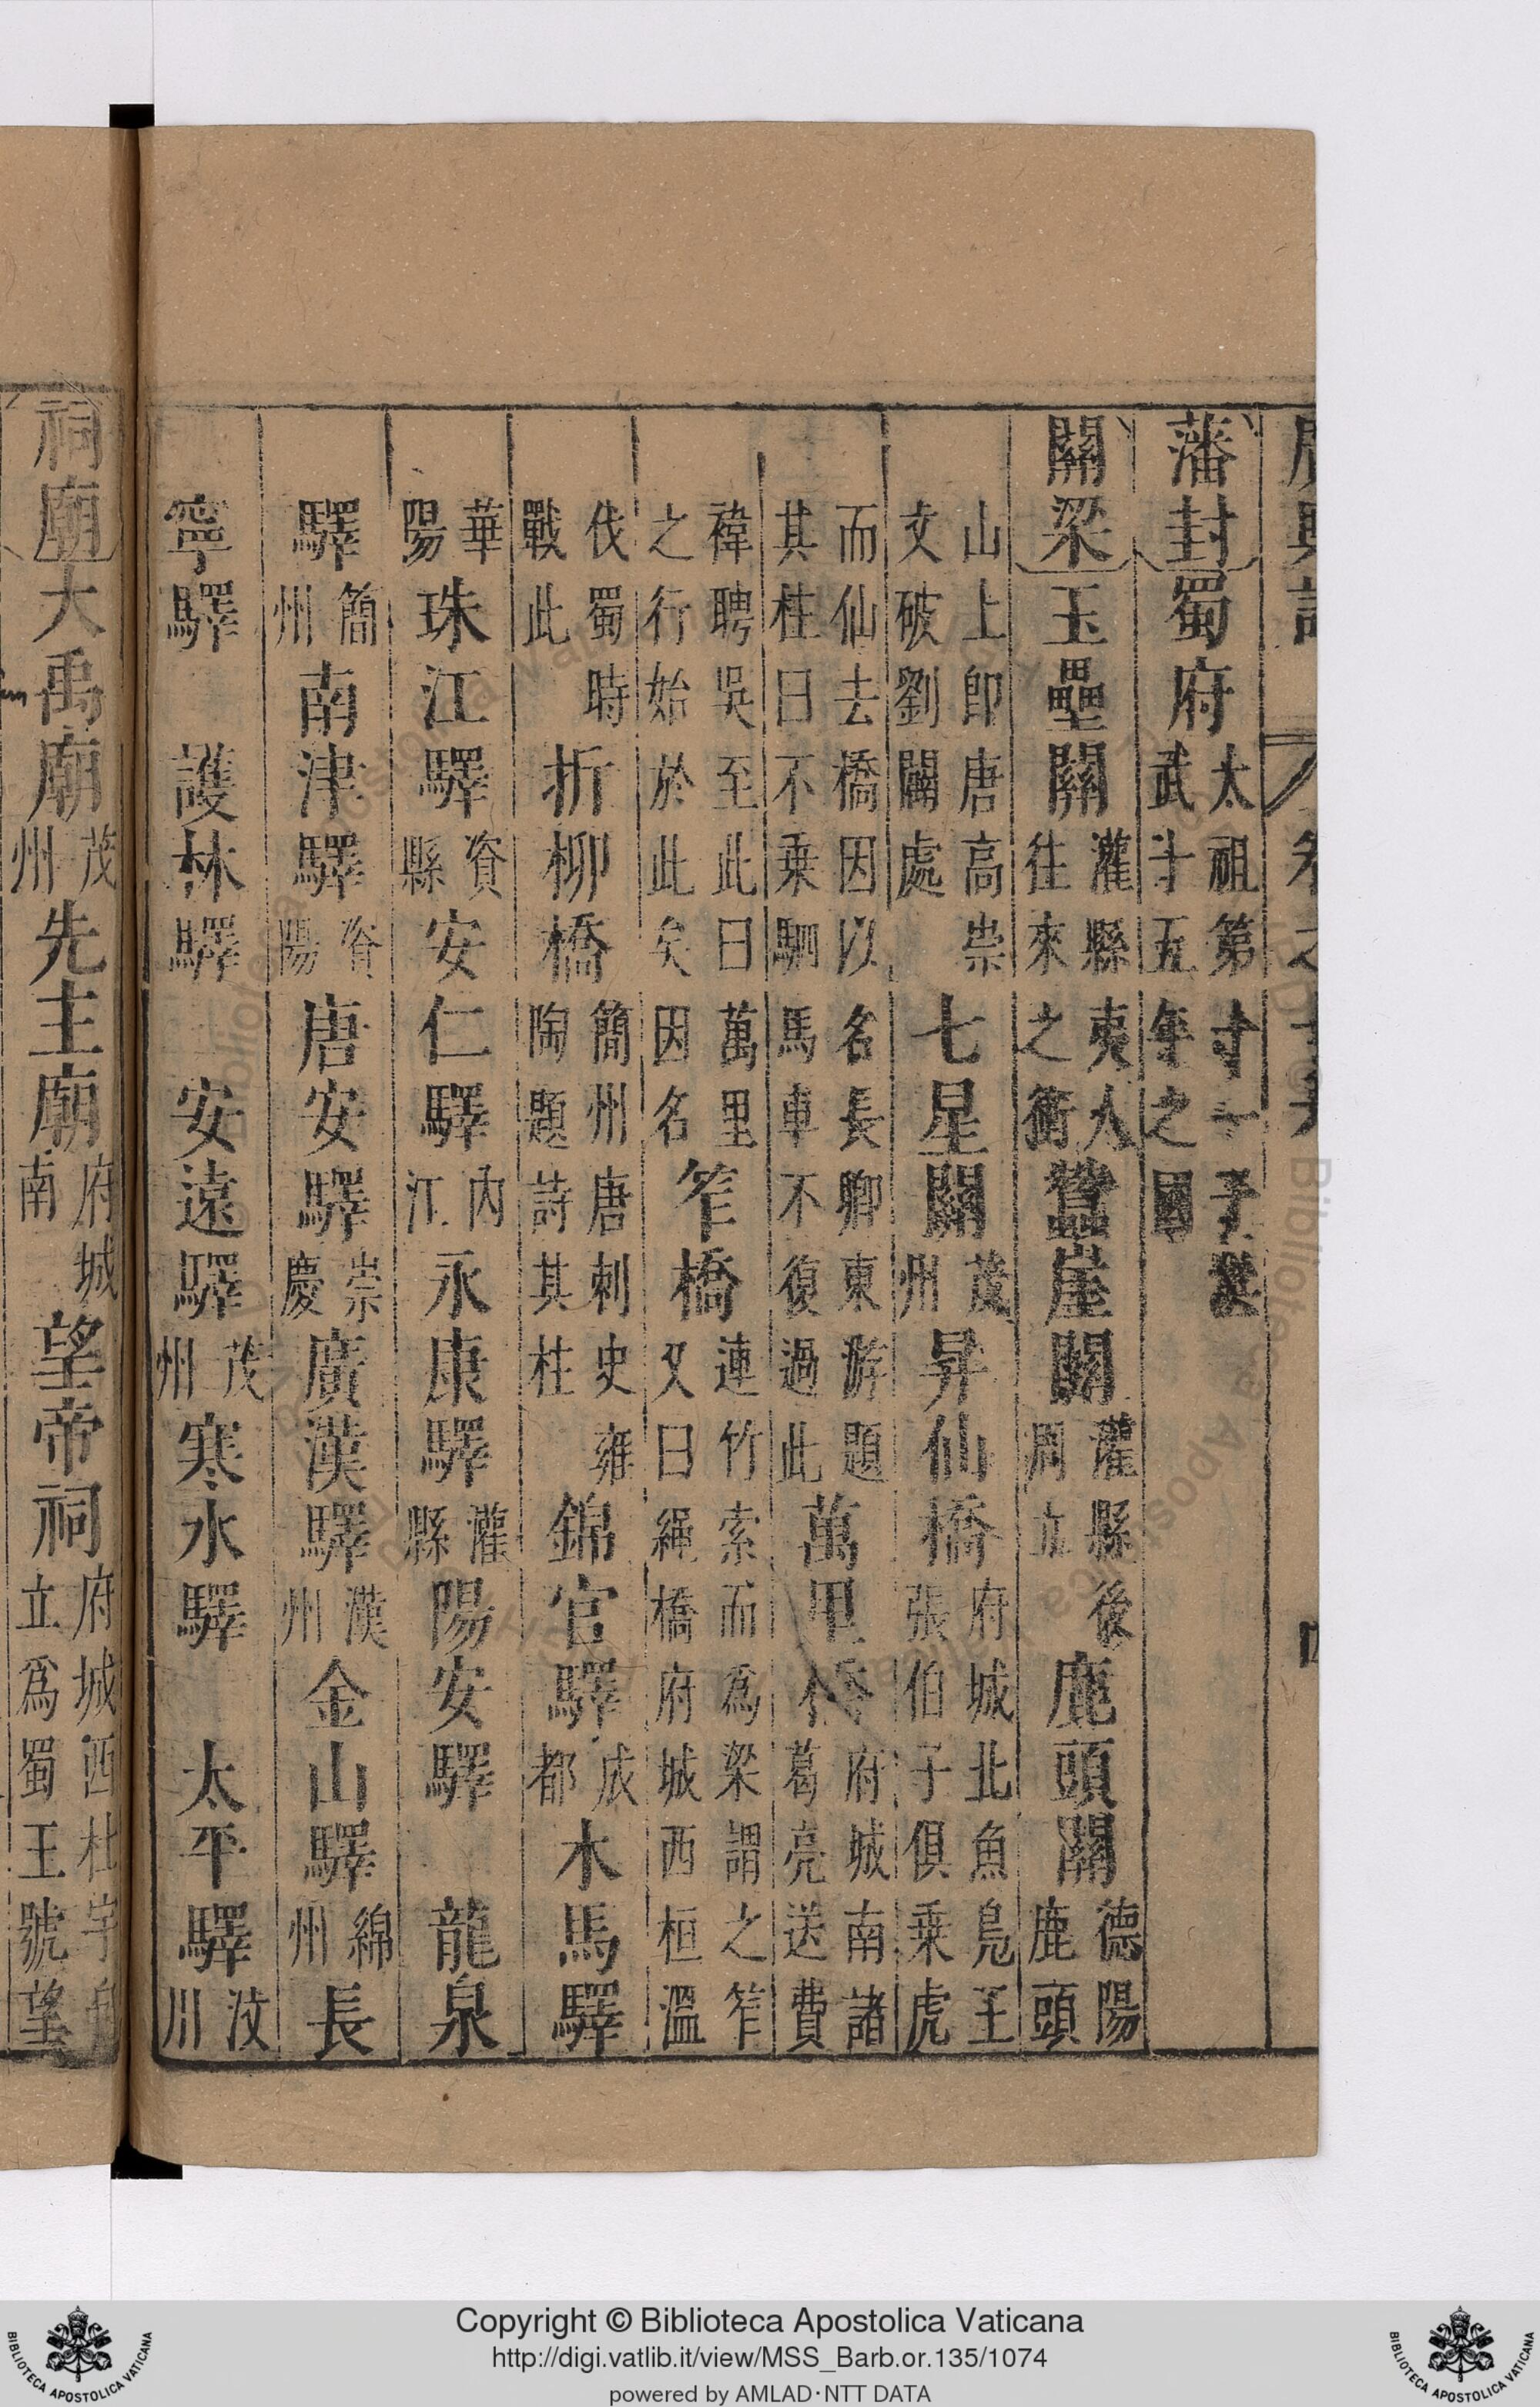 藩封蜀府太祖第十一子洪武十五年之國
關梁玉壘關灌縣夷人往來之衝蠶崖關灌縣後周立鹿頭關德陽鹿頭
山上即唐高崇文破劉闢處七星關茂州昇仙橋府城北魚鳧王張伯子俱乗虎
而仙去橋因以名長卿東游題其柱曰不乗駟馬車不復過此萬里橋府城南諸葛亮送費
禕聘吳至此曰萬里之行始於此矣因名笮橋連竹索而爲梁謂之笮又曰繩橋府城西桓溫
伐蜀時戰此折柳橋簡州唐刺史雍陶題詩其柱錦官驛成都木馬驛
華陽珠江驛資縣安仁驛內江永康驛灌縣陽安驛龍泉
驛簡州南津驛資陽唐安驛崇慶廣漢驛漢州金山驛綿州長
寧驛護林驛安遠驛茂州寒水驛太平驛汶川
祠廟大禹廟茂州先主廟府城南望帝祠府城西杜宇立爲蜀王號望
Copyright © Biblioteca Apostolica Vaticana
http://digi.vatlib.it/view/MSS_Barb.or.135/1074
powered by AMLAD·NTT DATA
BIBLIOTECA APOSTOLICA VATICANA
BIBLIOTECA APOSTOLICA VATICANA